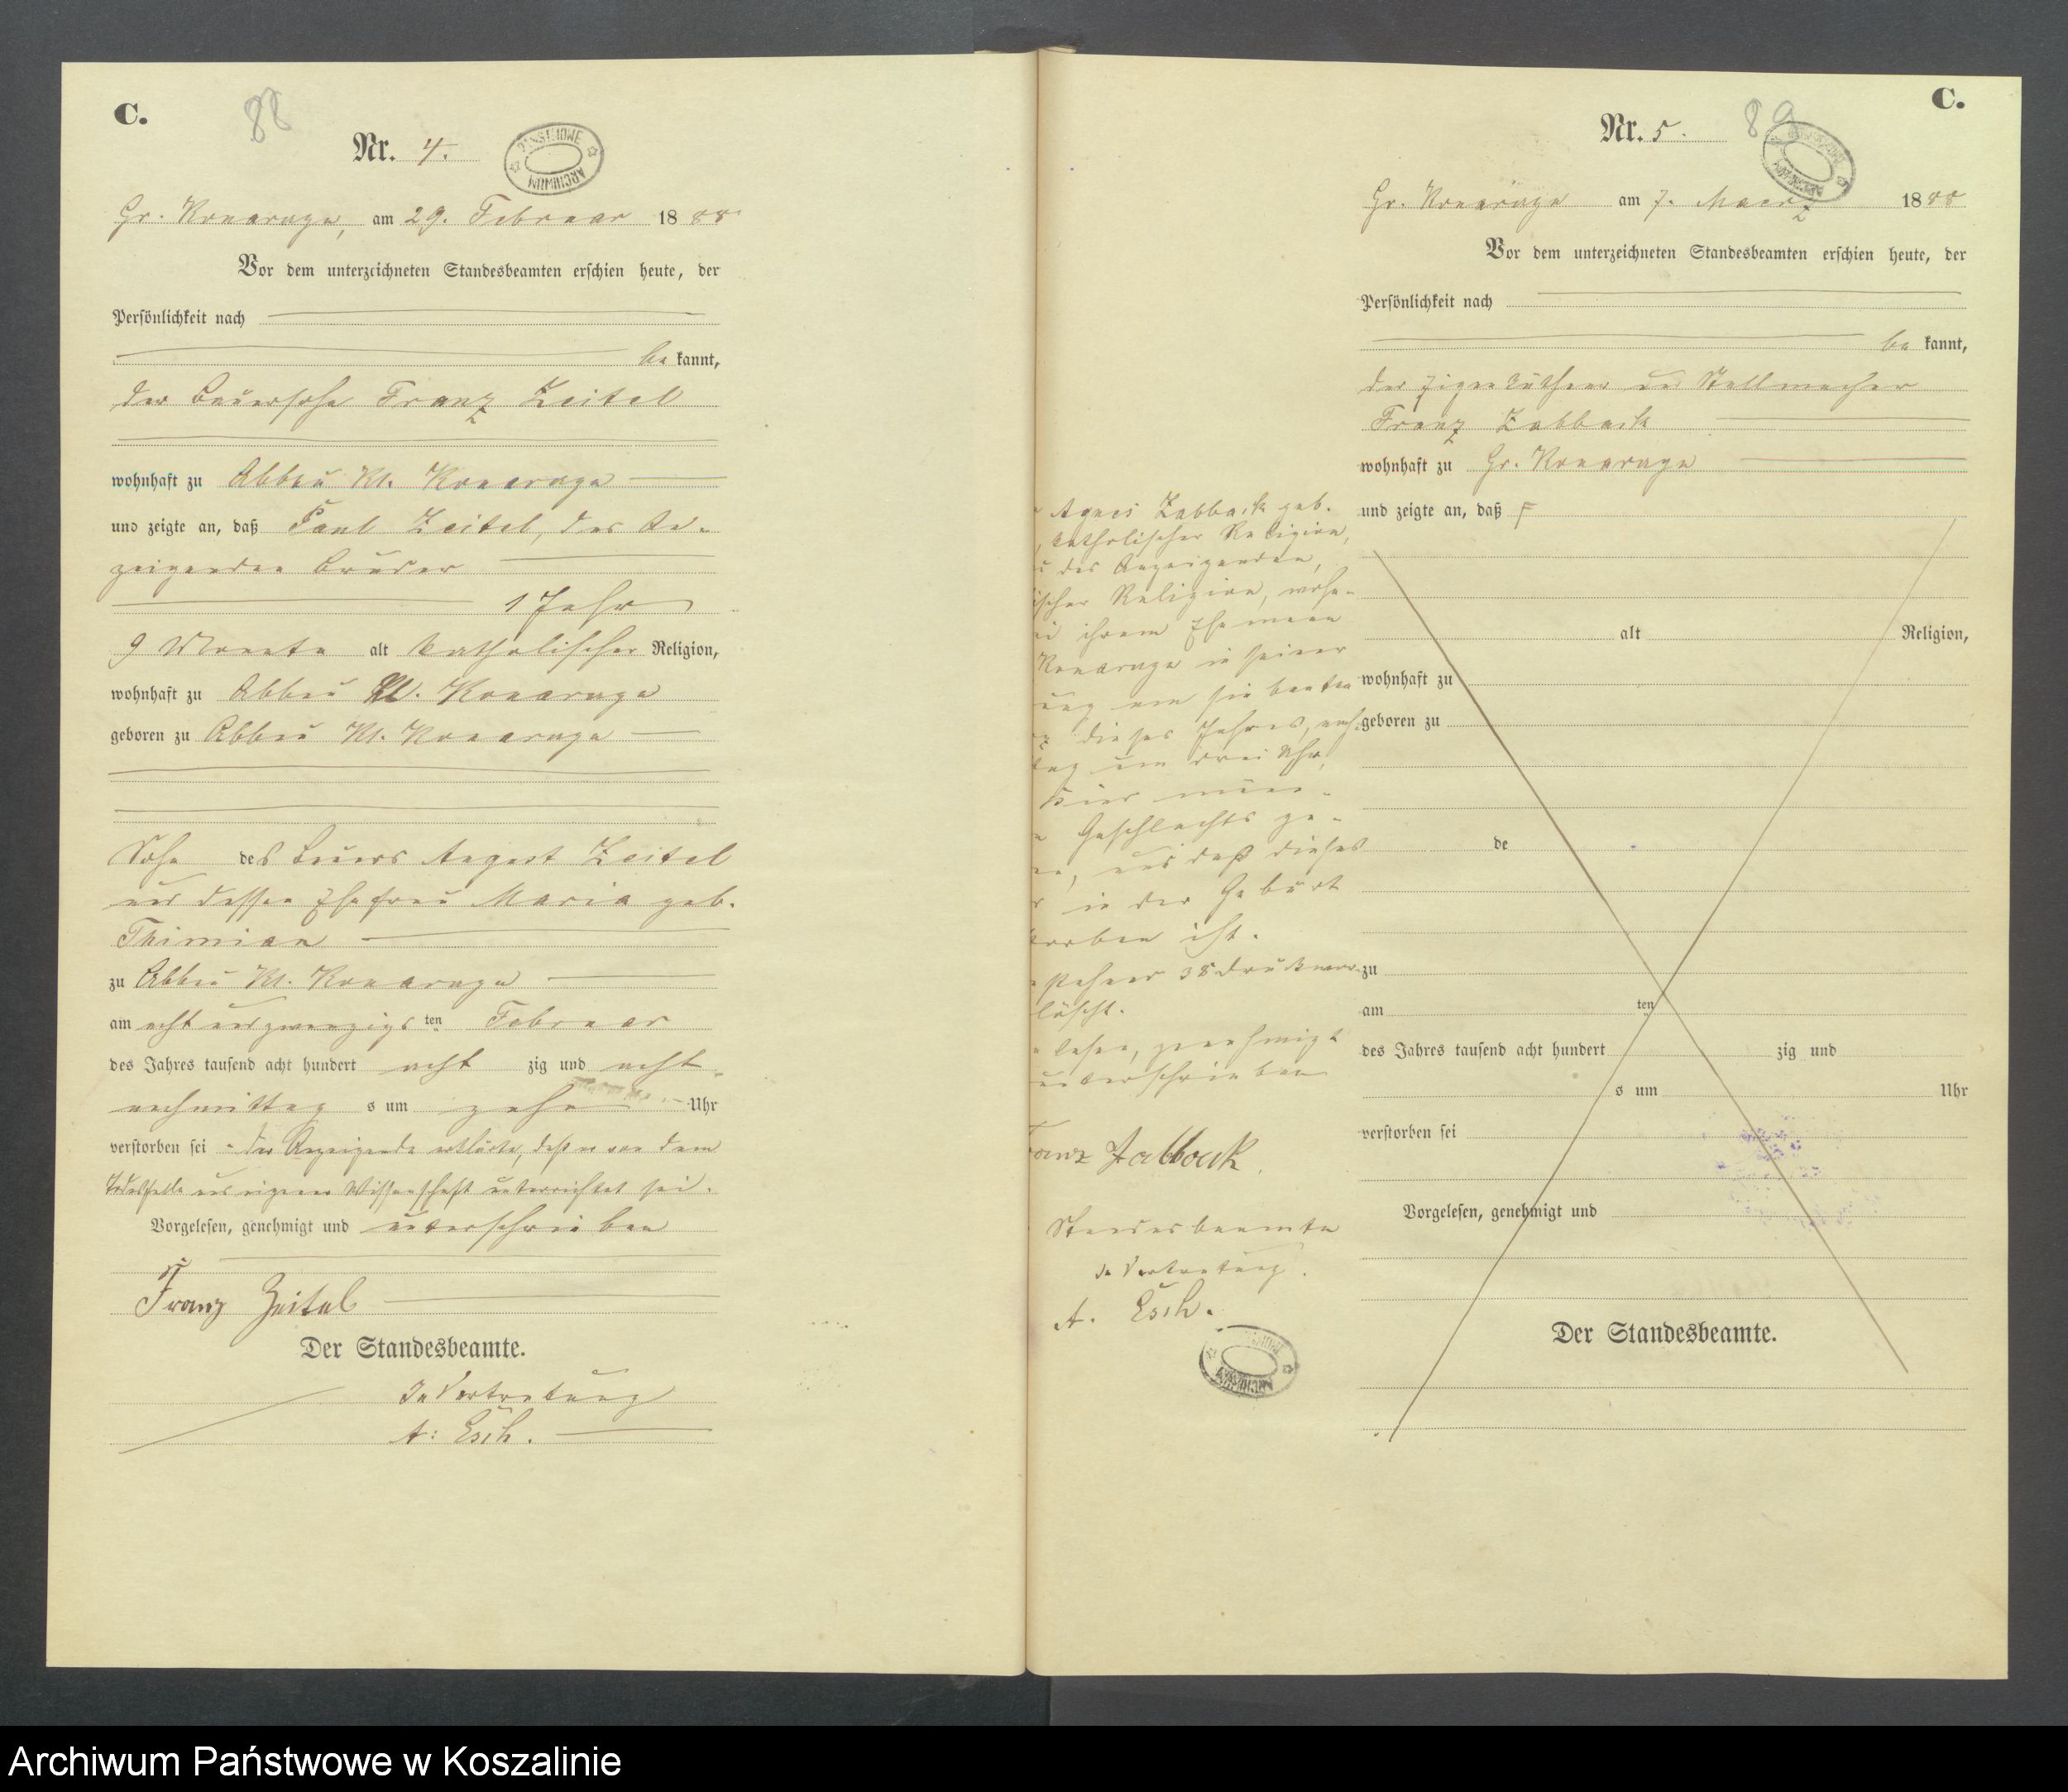 C.
88
Nr. 4.
Gr. Konarczyn, am 29. Februar 1888
Vor dem unterzeichneten Standesbeamten erschien heute, der
Persönlichkeit nach
be kannt,
der Bauersohn Franz Zeitel
wohnhaft zu Abbau Kl. Konarczyn
und zeigte an, daß Paul Zeitel, des An-
zeigenden Bruder
1 Jahr
9 Monate alt katholischer Religion,
wohnhaft zu Abbau Kl. Konarczyn
geboren zu Abbau Kl. Konarczyn
Sohn des Bauers August Zeitel
und dessen Ehefrau Maria geb.
Thimian
zu Abbau Kl. Konarczyn
am acht und zwanzigsten Februar
des Jahres tausend acht hundert achtzig und acht
nachmittags um zehn Uhr
verstorben sei - der Anzeigende erklärte, daß er von dem
Todesfalle aus eigener Wissenschaft unterrichtet sei.
Vorgelesen, genehmigt und unterschrieben
Franz Zeitel
Der Standesbeamte.
In Vertretung
A: Esch.
C.
89
Nr. 5.
Gr. Konarczyn am 7. Maerz 1888
Vor dem unterzeichneten Standesbeamten erschien heute, der
Persönlichkeit nach
be kannt,
der Eigenthümer und Stellmacher
Franz Zabback
wohnhaft zu Gr. Konarczyn
und zeigte an, daß
alt Religion,
wohnhaft zu
geboren zu
de
zu
am ten
des Jahres tausend acht hundert zig und
s um Uhr
verstorben sei
Vorgelesen, genehmigt und
Der Standesbeamte.
Agnes Zabback geb.
katholischer Religion,
des Anzeigenden,
ischer Religion, wohn-
ihrem Ehemann
Konarczyn in seiner
ung am siebenten
dieses Jahres, nach-
tag um drei Uhr,
Geschlechts ge-
, und daß dieses
in der Geburt
torben ist.
38 Druckwor-
löscht.
lesen, genehmigt
unterschrieben
anz Zabback
Standesbeamte
In Vertretung.
A. Esch.
ARCHIWUM PAŃSTWOWE
Archiwum Państwowe w Koszalinie